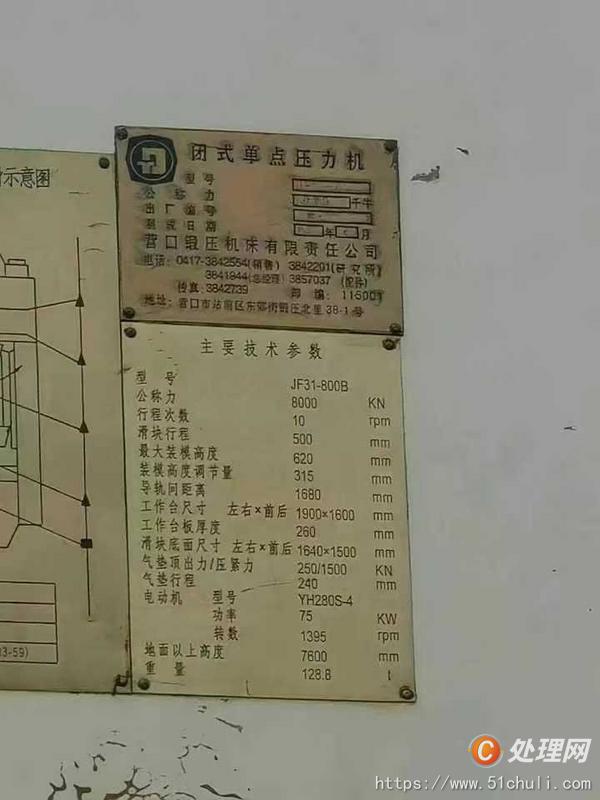 示意图
闭式单点压力机
型号
公称力 千牛
出厂编号
制成日期 年 月
营口锻压机床有限责任公司
电话: 0417-3842554(销售) 3842201(研究所)
3841944(总经理) 3857037 (配件)
传真: 3842739 邮编: 115001
地址: 营口市站前区东郊街锻压北里38-1号
主要技术参数
型号 JF31-800B
公称力 8000 KN
行程次数 10 rpm
滑块行程 500 mm
最大装模高度 620 mm
装模高度调节量 315 mm
导轨间距离 1680 mm
工作台尺寸 左右×前后 1900×1600 mm
工作台板厚度 260 mm
滑块底面尺寸 左右×前后 1640×1500 mm
气垫顶出力/压紧力 250/1500 KN
气垫行程 240 mm
电动机 型号 YH280S-4
功率 75 KW
转数 1395 rpm
地面以上高度 7600 mm
重量 128.8 t
3-59)
C 处理网
https://www.51chuli.com/